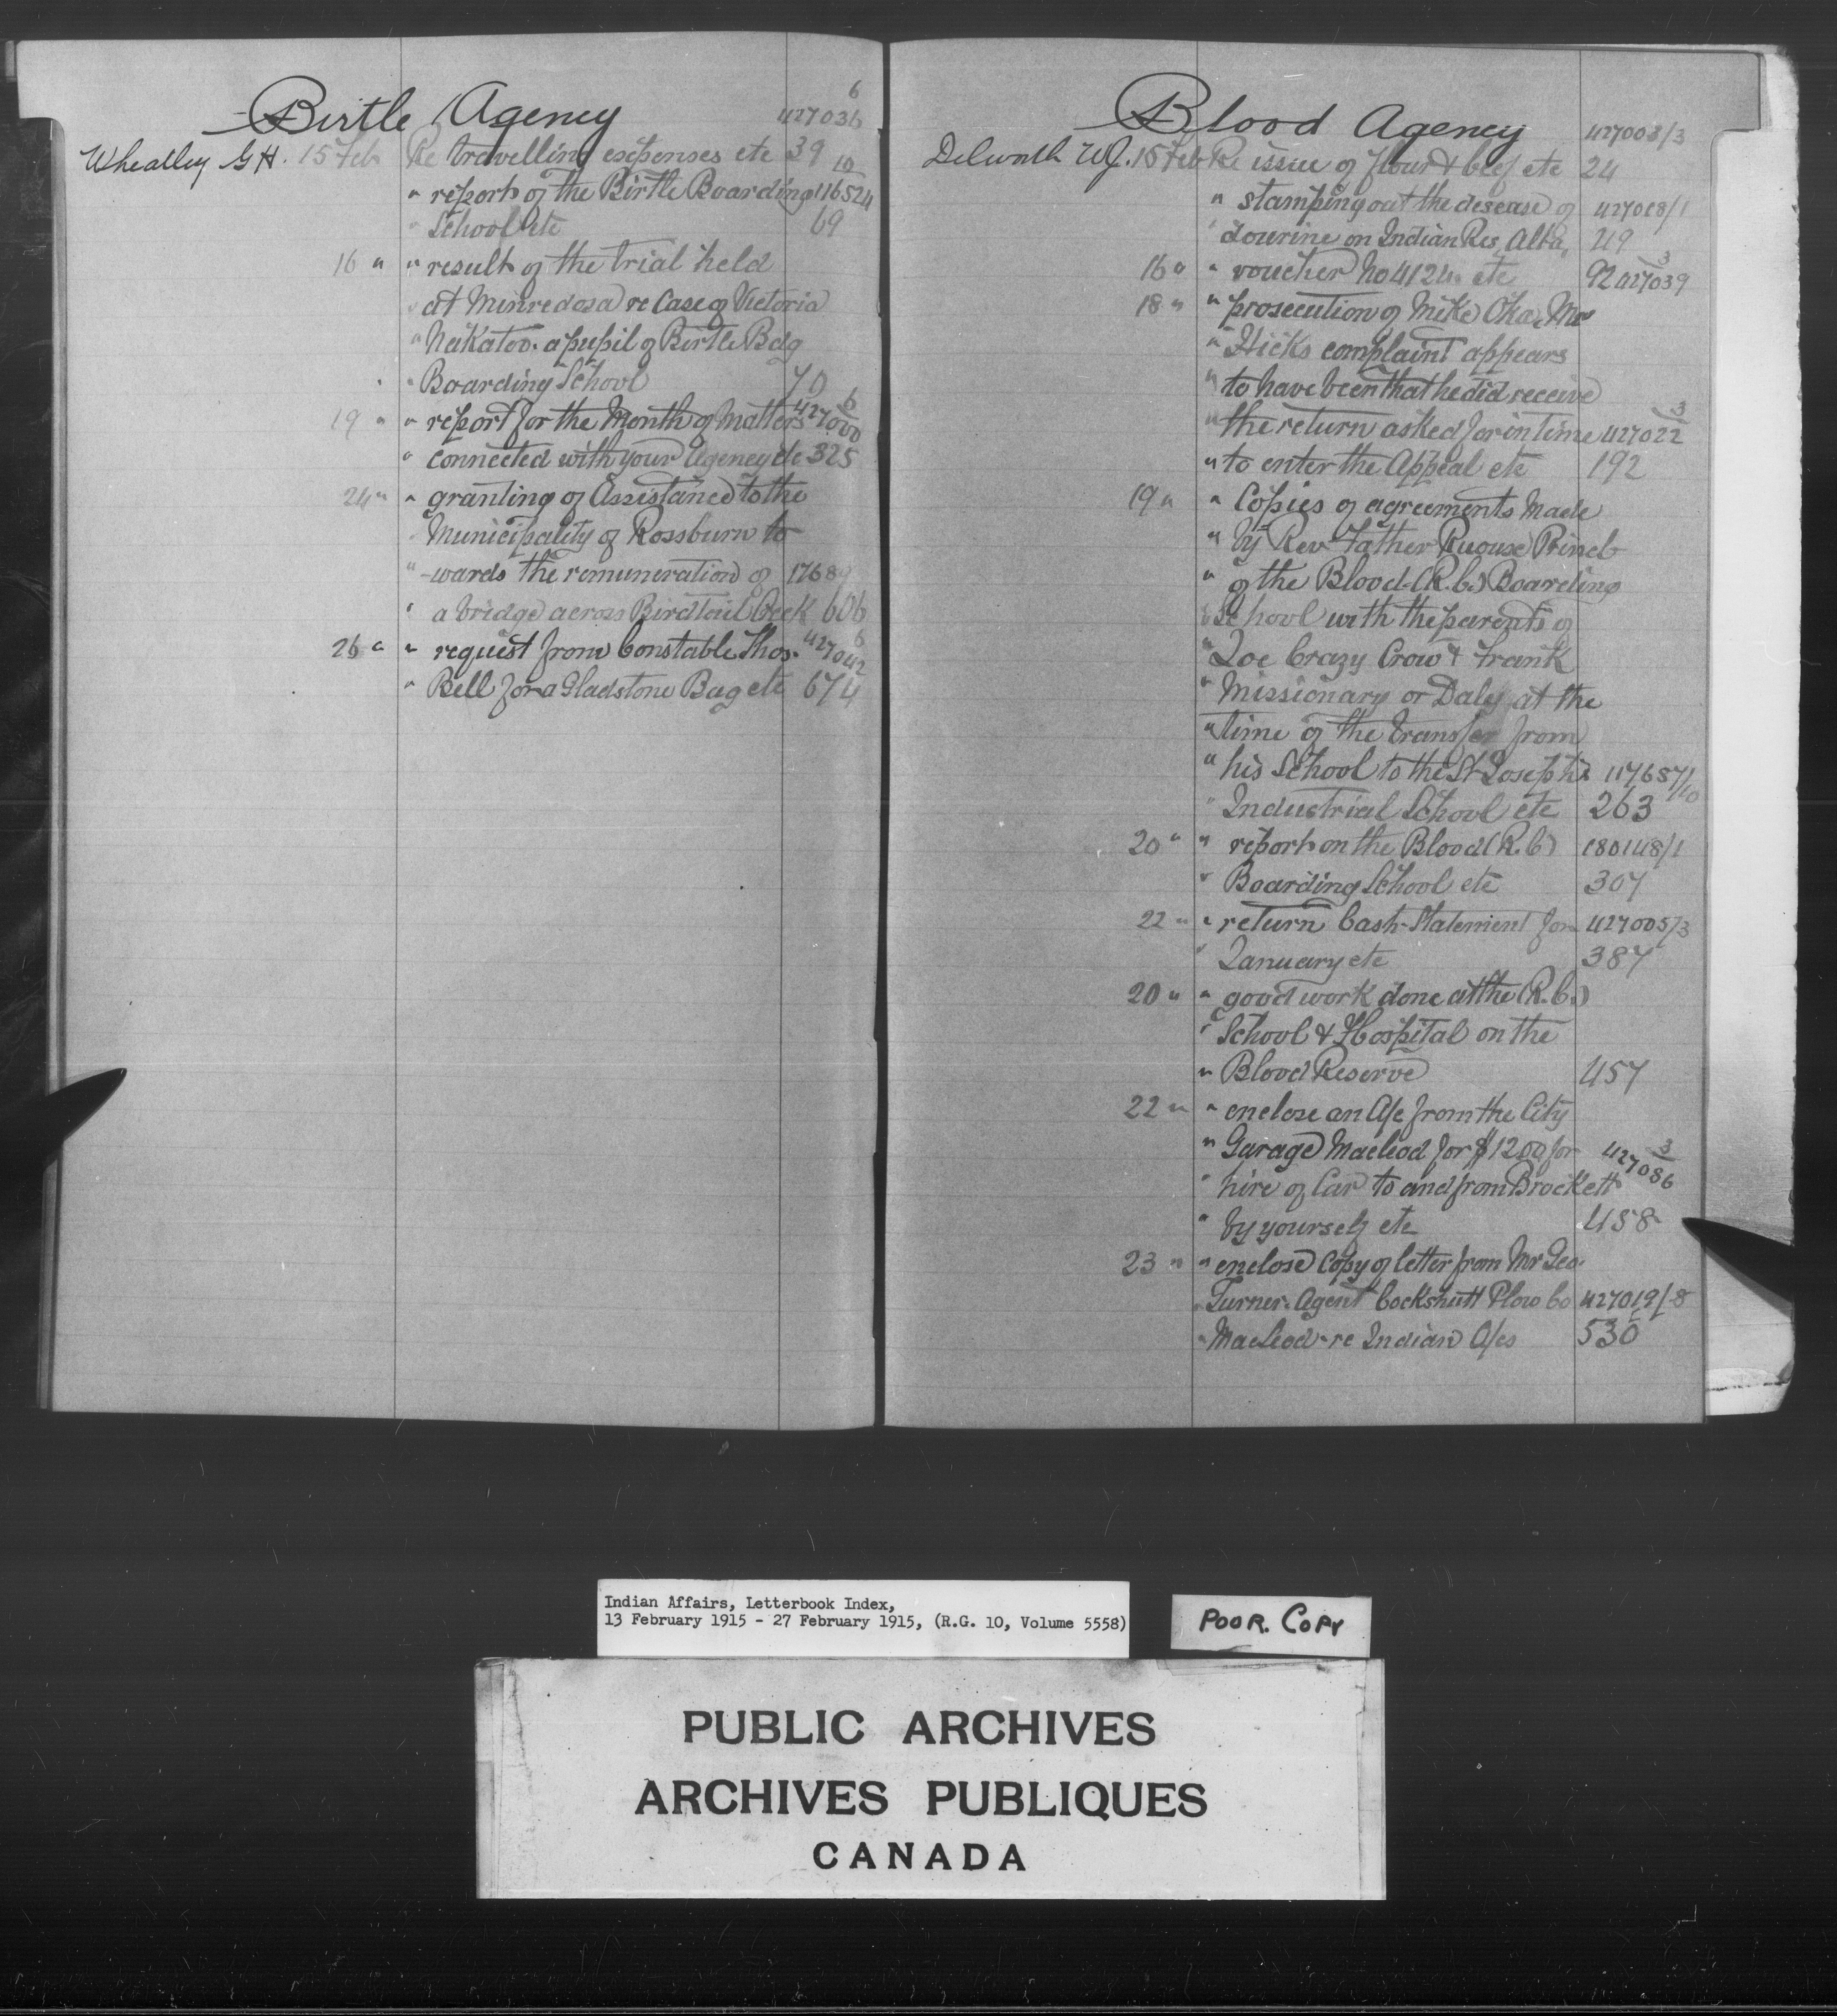 Birtle Agency
6
427036
Wheatley G H. 15 Feb Re travelling expenses etc 39
10
" report of the Birtle Boarding 116524
" School etc 69
16 " " result of the trial held
" at Minnedosa re Case of Victoria
" Nakatoo. a pupil of Birtle Bdg
" Boarding School 70
6
19 " " report for the Month of Matters 427000
" connected with your Agency etc 325
24 " " granting of Assistance to the
" Municipality of Rossburn to
" -wards the remuneration of 17689
" a bridge across Birdtail Creek 606
6
26 " " request from Constable Thos. 427042
" Bell for a Gladstone Bag etc 674
Blood Agency 427003/3
Dilworth W.J. 15 Feb Re issue of flour & beef etc 24
" stamping out the desease of 427018/1
" dourine on Indian Res, Alta, 49
3
16 " " voucher No 4124. etc 92 427039
18 " " prosecution of Mike Oka, Mr
" Hicks complaint appears
" to have been that he did receive
3
" the return asked for in time 427022
" to enter the Appeal etc 192
19 " " Copies of agreements Made
" by Rev Father Ruouse Princ
" of the Blood (R.C.) Boarding
" School with the parents of
" Joe Crazy Crow & Frank
" Missionary or Daly at the
" time of the transfer from
" his School to the St Joseph's 117687/10
" Industrial School etc 263
20 " " report on the Blood (R.C) 180148/1
" Boarding School etc 307
22 " " return Cash Statement for 427005/3
" January etc 387
20 " " good work done at the (R.C.)
" School & Hospital on the
" Blood Reserve 457
22 " " enclose an A/c from the City
3
" Garage Macleod for $12.00 for 427086
" hire of Car to and from Brockett
" by yourself etc 458
23 " " enclose Copy of letter from Mr Geo.
" Turner. Agent Cockshutt Plow Co 427019/8
" Macleod - re Indian A/cs 530
Indian Affairs, Letterbook Index,
13 February 1915 - 27 February 1915, (R.G. 10, Volume 5558)
POOR. COPY
PUBLIC ARCHIVES
ARCHIVES PUBLIQUES
CANADA